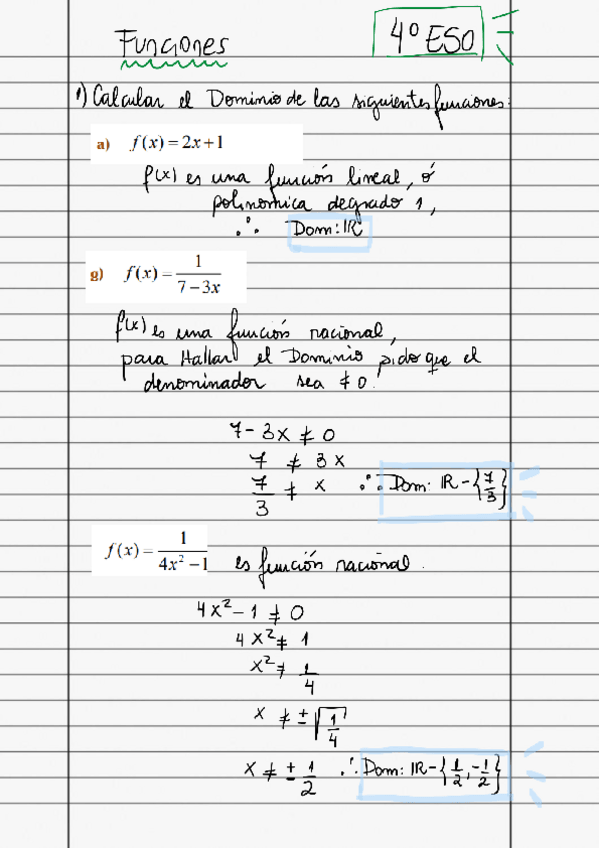 Funciones
4º ESO
1) Calcular el Dominio de las siguientes funciones:
a) f(x) = 2x+1
f(x) es una función lineal, ó
polinómica de grado 1,
∴ Dom: IR
g) f(x) = 1/(7-3x)
f(x) es una función racional,
para Hallar el Dominio pido que el
denominador sea ≠ 0.
7-3x ≠ 0
7 ≠ 3x
7/3 ≠ x ∴ Dom: IR-{7/3}
f(x) = 1/(4x²-1) es función racional.
4x²-1 ≠ 0
4x² ≠ 1
x² ≠ 1/4
x ≠ ±√(1/4)
x ≠ ± 1/2 ∴ Dom: IR-{1/2, -1/2}